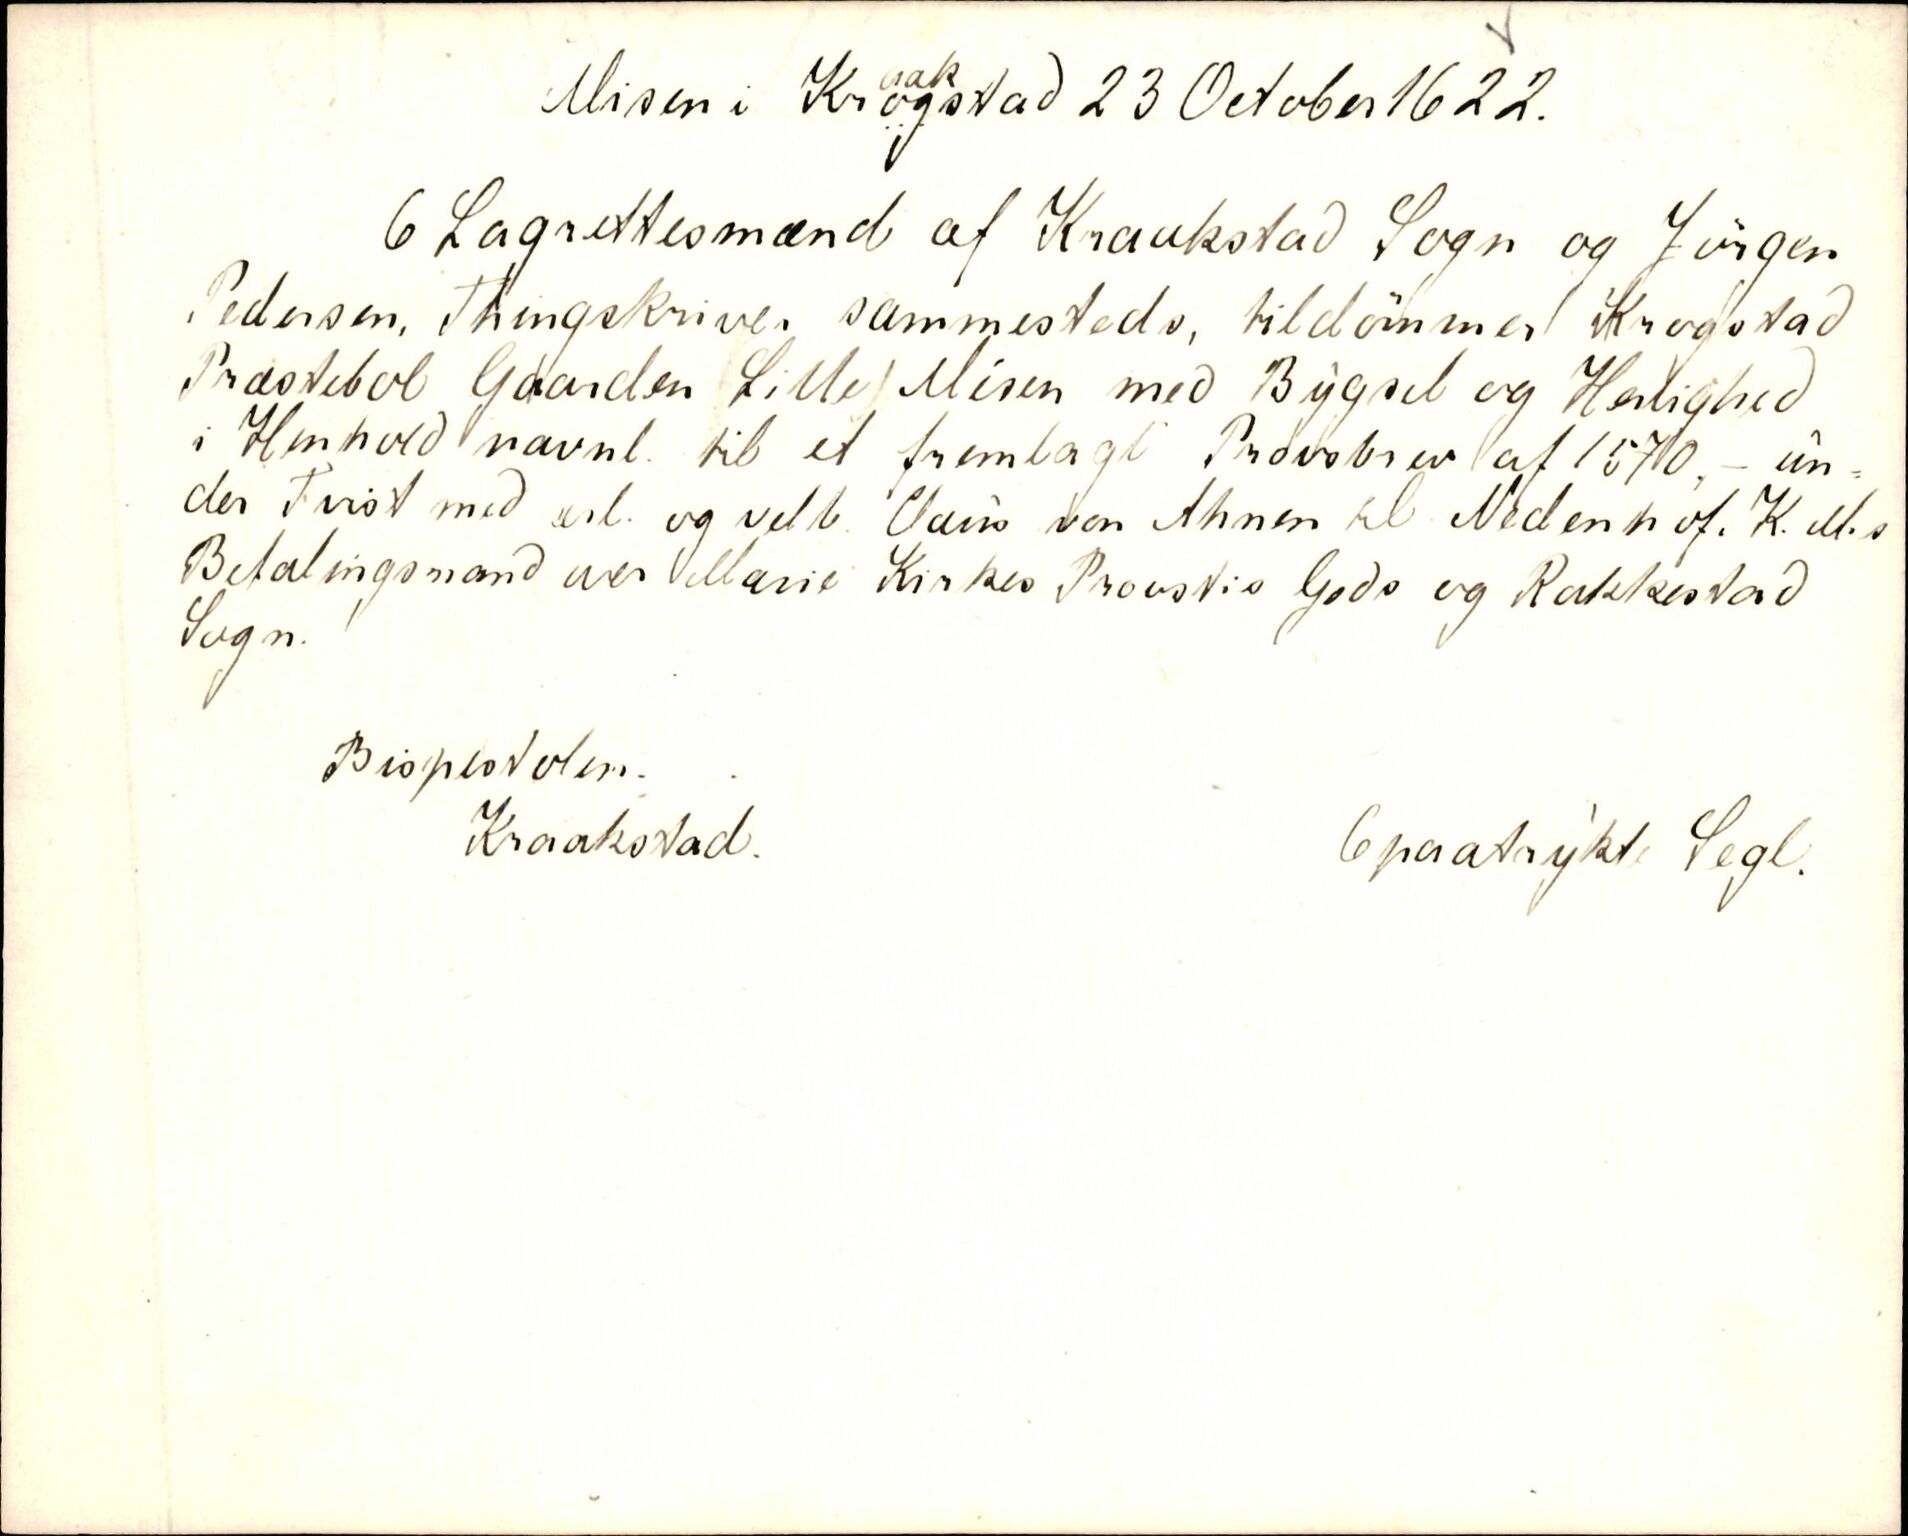 Misen i Krogstad 23 October 1622.
aak
6 Lagrettesmænd af Kraakstad Sogn og Jörgen
Pedersen, Thingskriver sammesteds, tildömmer Krogstad
Præstebol Gaarden Lille Misen med Bygsel og Herlighed
i Henhold navnl. til et fremlagt Provsbrev af 1570, – un-
der Tvist med erl. og velb. Claus von Ahnen til Nedenhof. K. M.s
Betalingsmand over Marie Kirkes Provstis Gods og Rakkestad
Sogn.
Bispestolen.
Kraakstad.
6 paatrykte Segl.